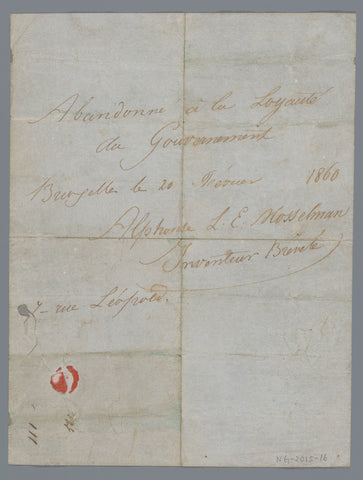 Abandonné à la Loyauté
du Gouvernement
Bruxelles le 20 Février 1860
Alphonse L. E. Mosselman
Inventeur Breveté
7 - rue Léopold.
NG-2015-16